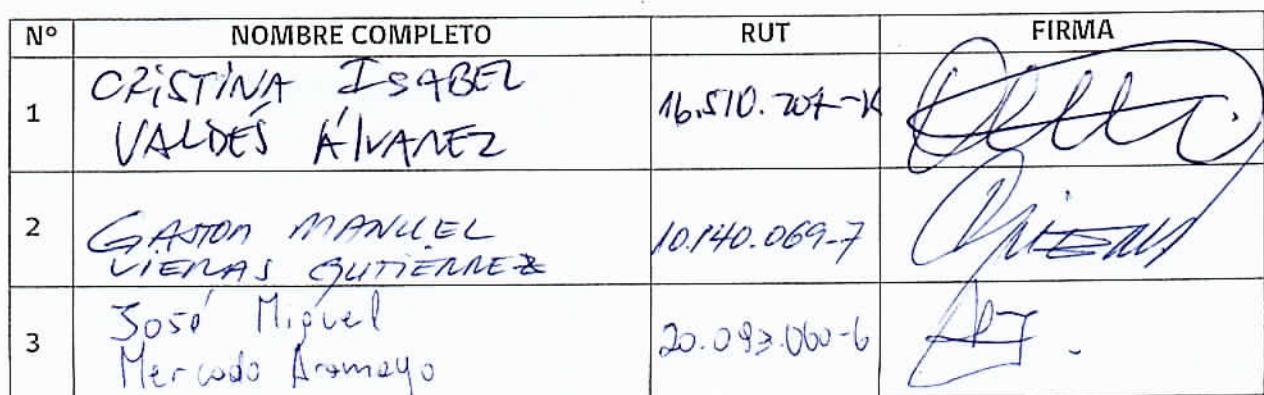 Nº NOMBRE COMPLETO RUT FIRMA
1 CRISTINA ISABEL
VALDÉS ÁLVAREZ 16.510.207-K
2 GASTON MANUEL
VIERAS GUTIERREZ 10.140.069-7
3 José Miguel
Mercado Aramayo 20.093.060-6